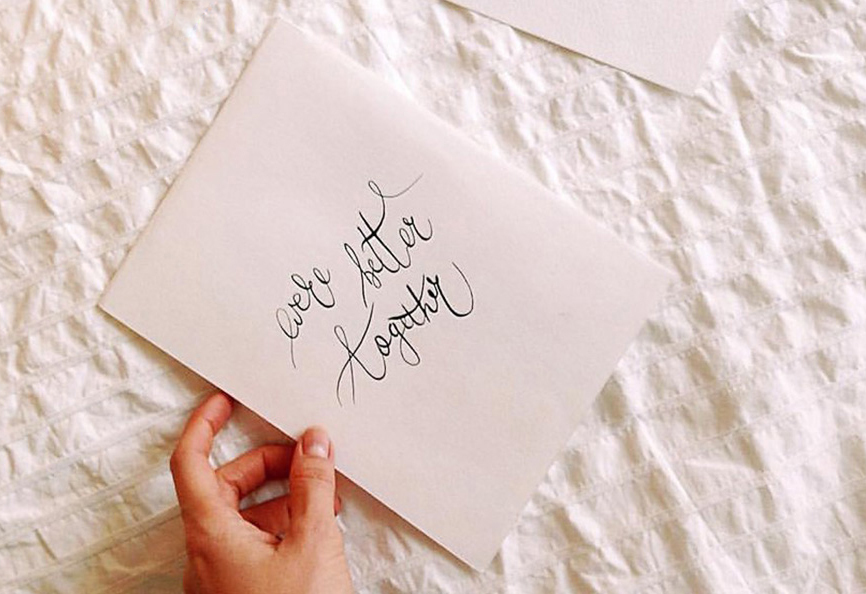 were better
together